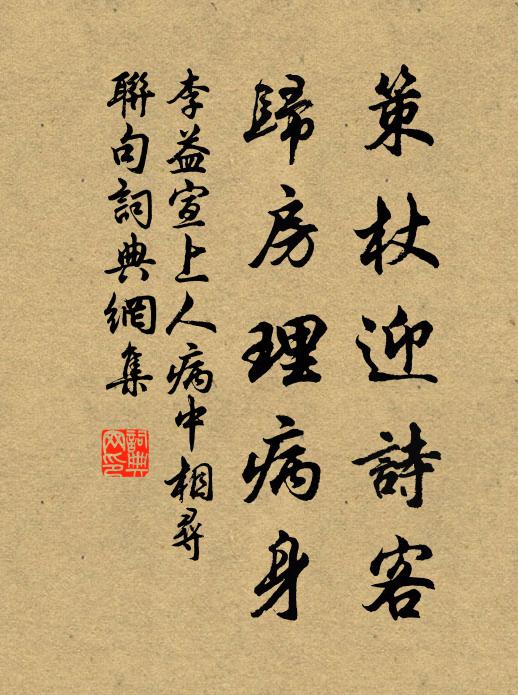 策杖迎詩客
歸房理病身
李益宣上人病中相尋
聯句詞典網集
詞典
網印